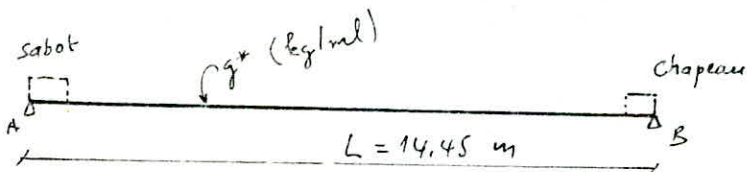 Sabot
g* (kg/ml)
Chapeau
A
B
L = 14.45 m